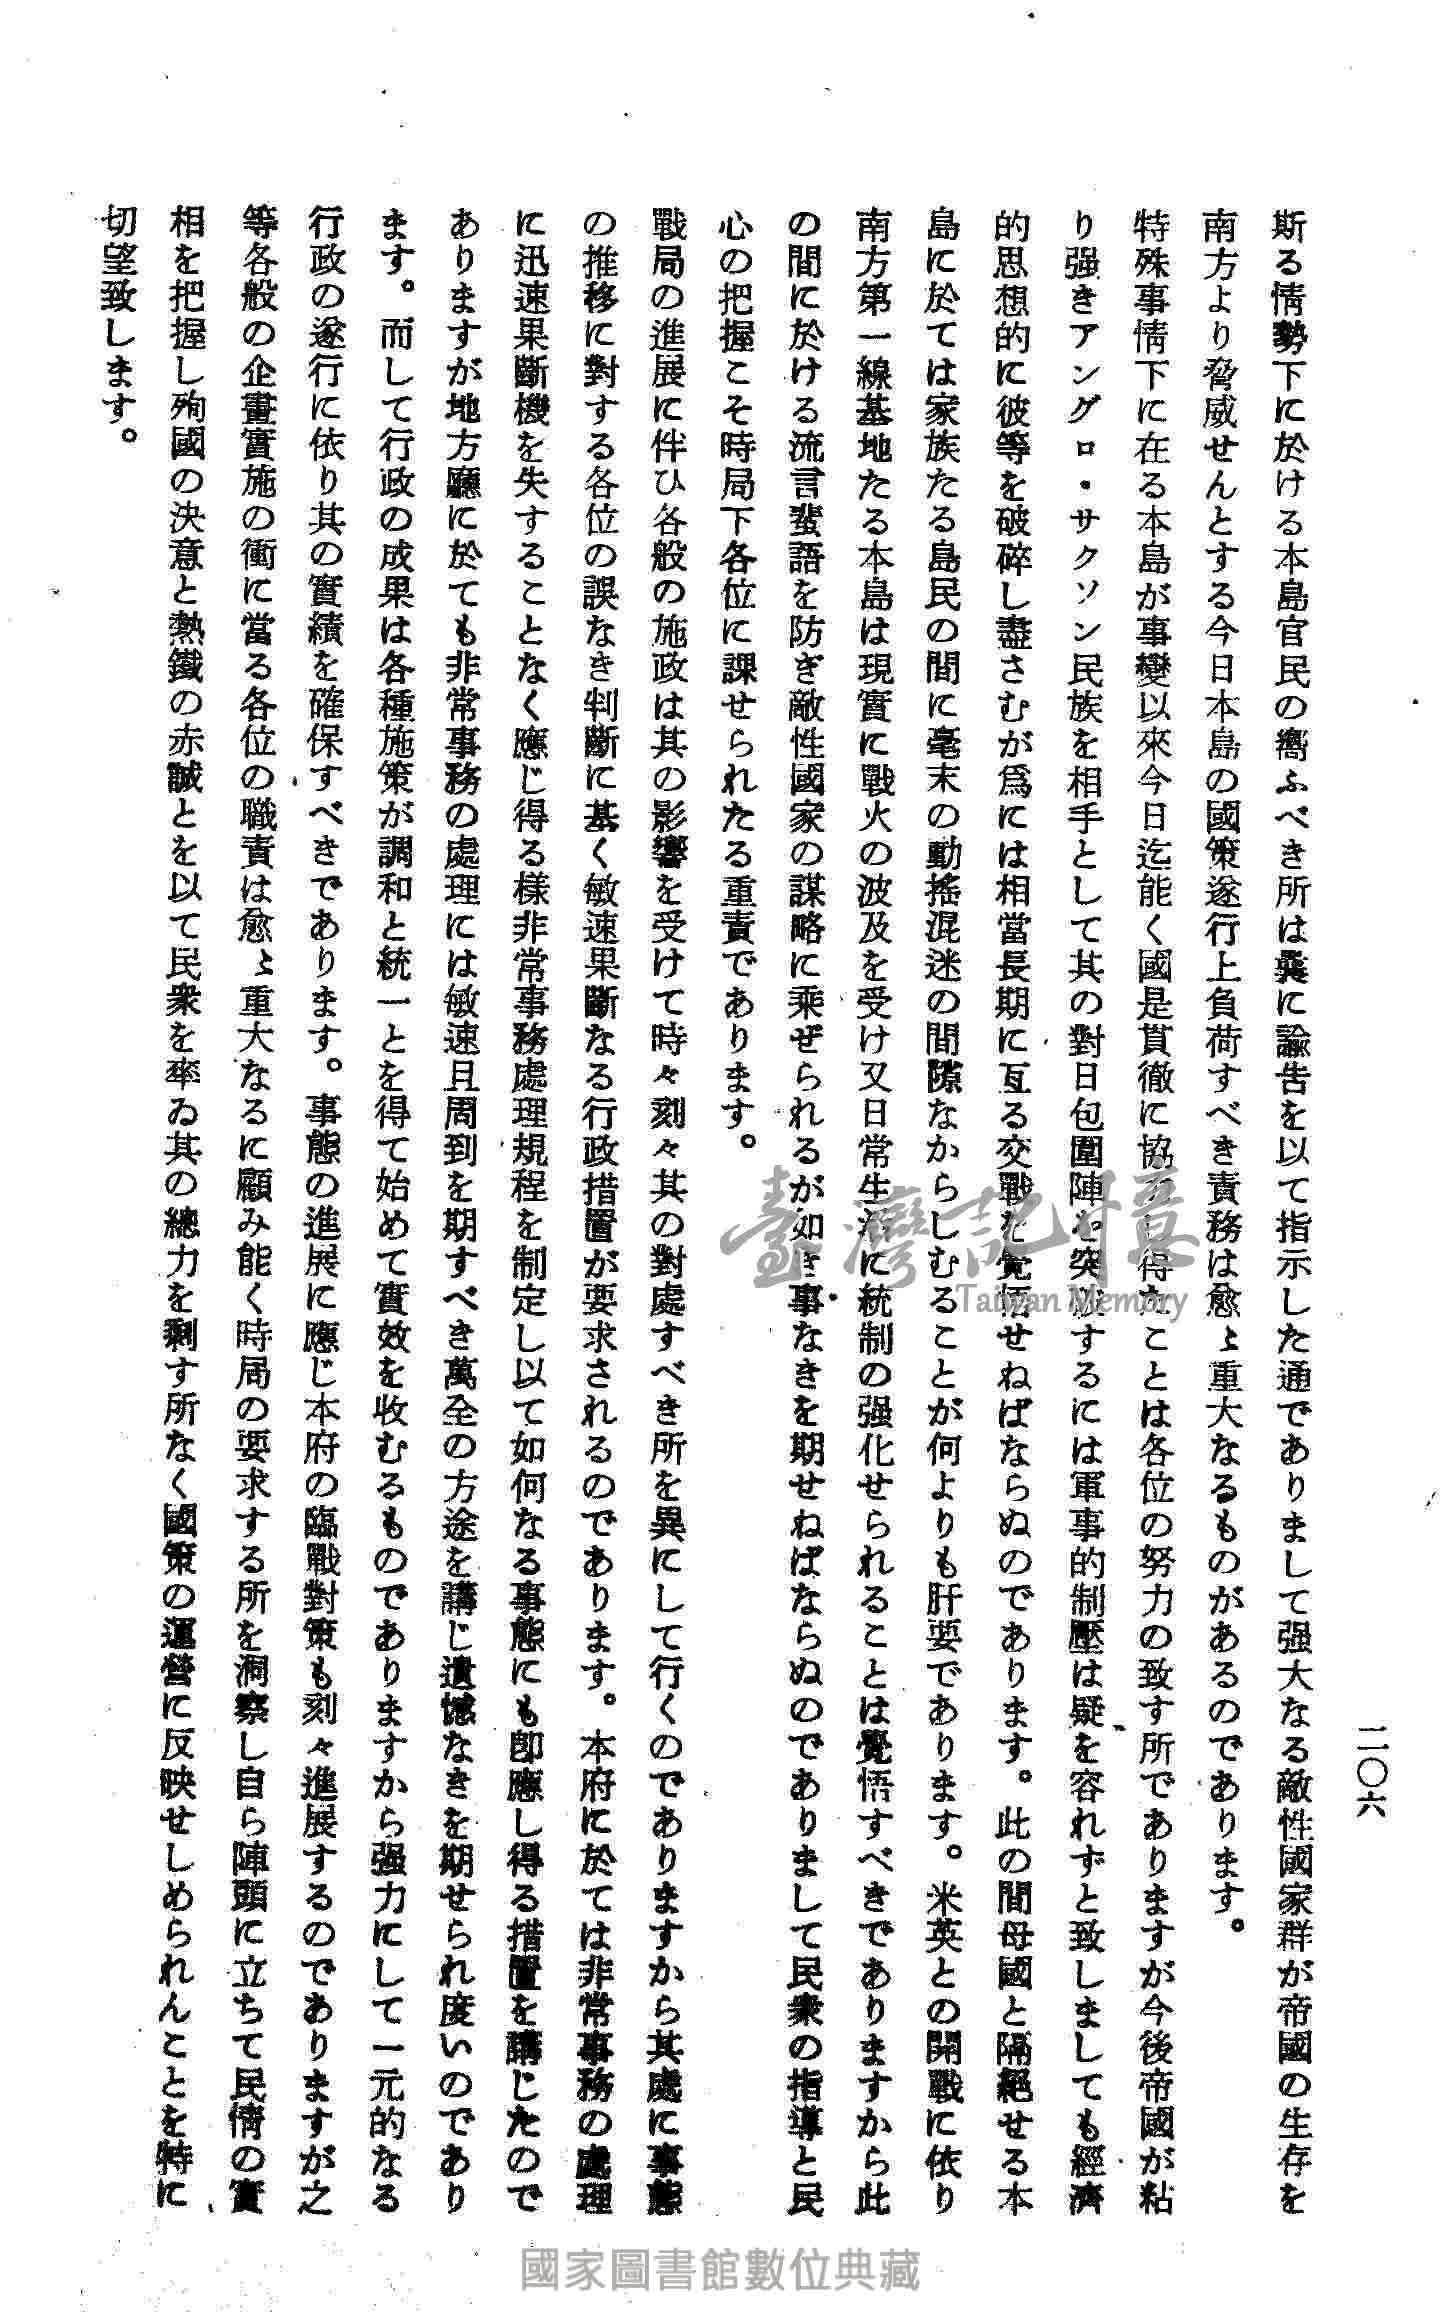 二〇六
斯る情勢下に於ける本島官民の嚮ふべき所は曩に諭告を以て指示した通でありまして强大なる敵性國家群が帝國の生存を
南方より脅威せんとする今日本島の國策遂行上負荷すべき責務は愈〻重大なるものがあるのであります。
特殊事情下に在る本島が事變以來今日迄能く國是貫徹に協力し得たことは各位の努力の致す所でありますが今後帝國が粘
り强きアングロ・サクソン民族を相手として其の對日包圍陣を突破するには軍事的制壓は疑を容れずと致しましても經濟
的思想的に彼等を破碎し盡さむが爲には相當長期に亙る交戰を覺悟せねばならぬのであります。此の間母國と隔絕せる本
島に於ては家族たる島民の間に毫末の動搖混迷の間隙なからしむることが何よりも肝要であります。米英との開戰に依り
南方第一線基地たる本島は現實に戰火の波及を受け又日常生活に統制の强化せられることは覺悟すべきでありますから此
の間に於ける流言蜚語を防ぎ敵性國家の謀略に乘ぜられるが如き事なきを期せねばならぬのでありまして民衆の指導と民
心の把握こそ時局下各位に課せられたる重責であります。
戰局の進展に伴ひ各般の施政は其の影響を受けて時々刻々其の對處すべき所を異にして行くのでありますから其處に事態
の推移に對する各位の誤なき判斷に基く敏速果斷なる行政措置が要求されるのであります。本府に於ては非常事務の處理
に迅速果斷機を失することなく應じ得る樣非常事務處理規程を制定し以て如何なる事態にも卽應し得る措置を講じたので
ありますが地方廳に於ても非常事務の處理には敏速且周到を期すべき萬全の方途を講じ遺憾なきを期せられ度いのであり
ます。而して行政の成果は各種施策が調和と統一とを得て始めて實效を收むるものでありますから强力にして一元的なる
行政の遂行に依り其の實績を確保すべきであります。事態の進展に應じ本府の臨戰對策も刻々進展するのでありますが之
等各般の企畫實施の衝に當る各位の職責は愈〻重大なるに顧み能く時局の要求する所を洞察し自ら陣頭に立ちて民情の實
相を把握し殉國の決意と熱鐵の赤誠とを以て民衆を率ゐ其の總力を剩す所なく國策の運營に反映せしめられんことを特に
切望致します。
臺灣記憶
Taiwan Memory
國家圖書館數位典藏